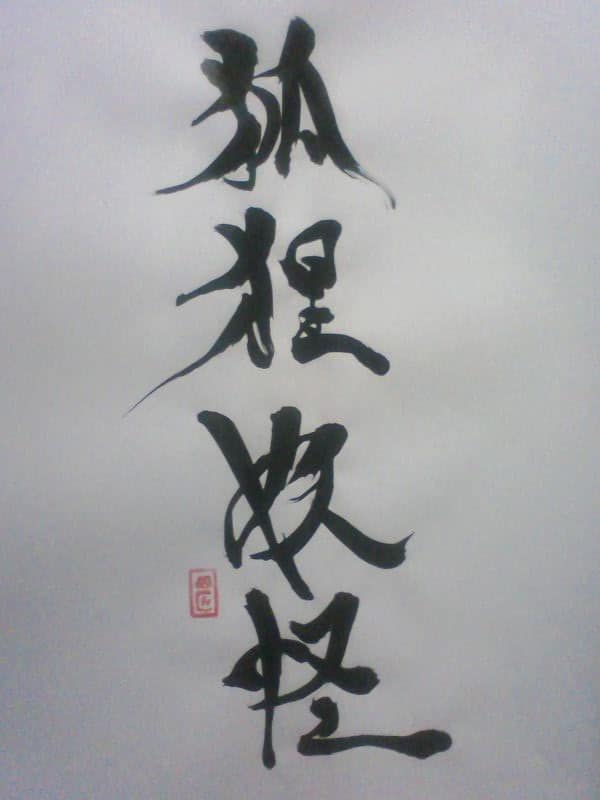 狐狸妖怪